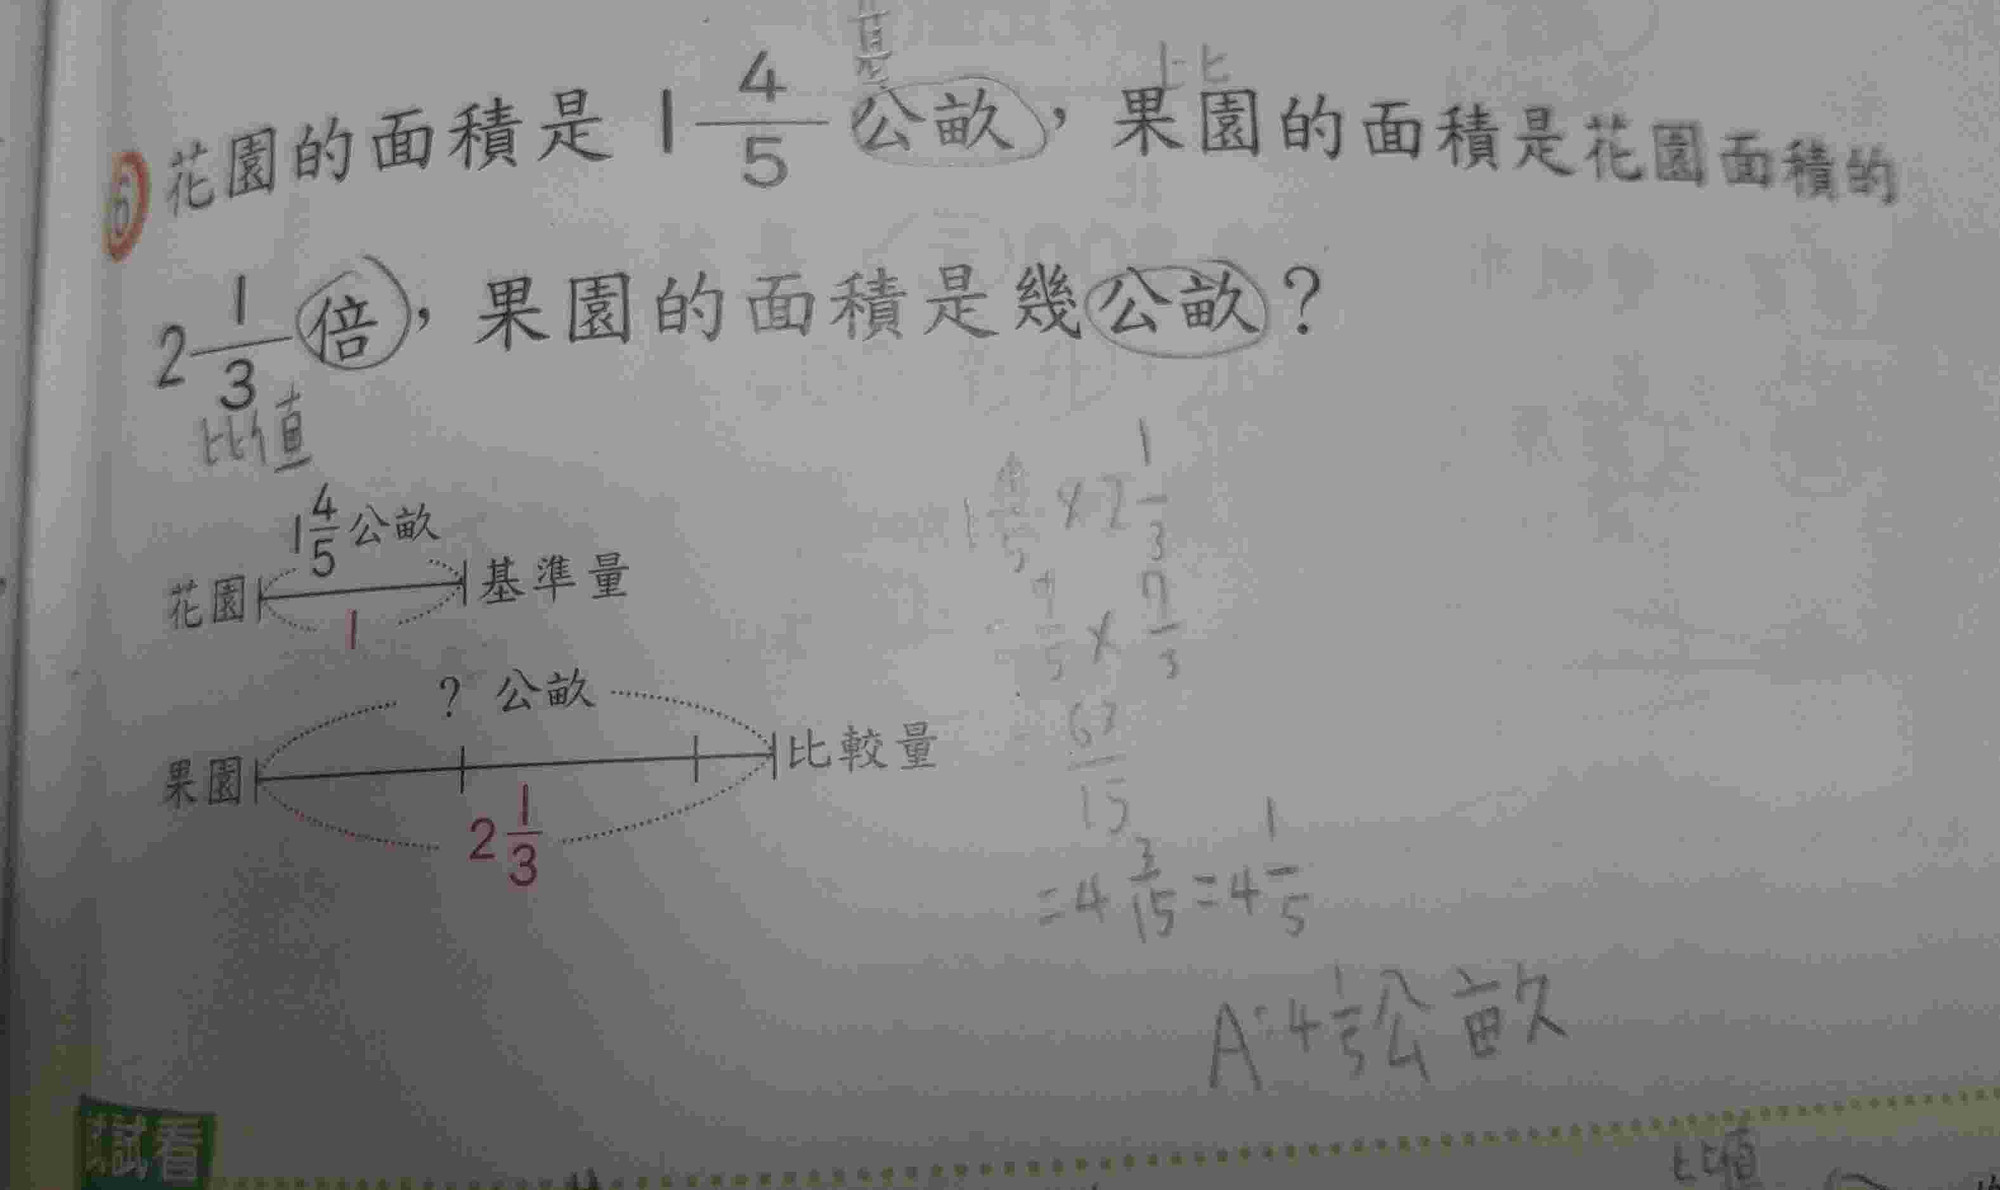 基 比
⑥ 花園的面積是 1 4/5 公畝，果園的面積是花園面積的
2 1/3 倍，果園的面積是幾公畝？
比值
1 4/5 公畝
花園 基準量
1
? 公畝
果園 比較量
2 1/3
1 4/5 × 2 1/3
9/5 × 7/3
63/15
= 4 3/15 = 4 1/5
A: 4 1/5 公畝
試看
比值